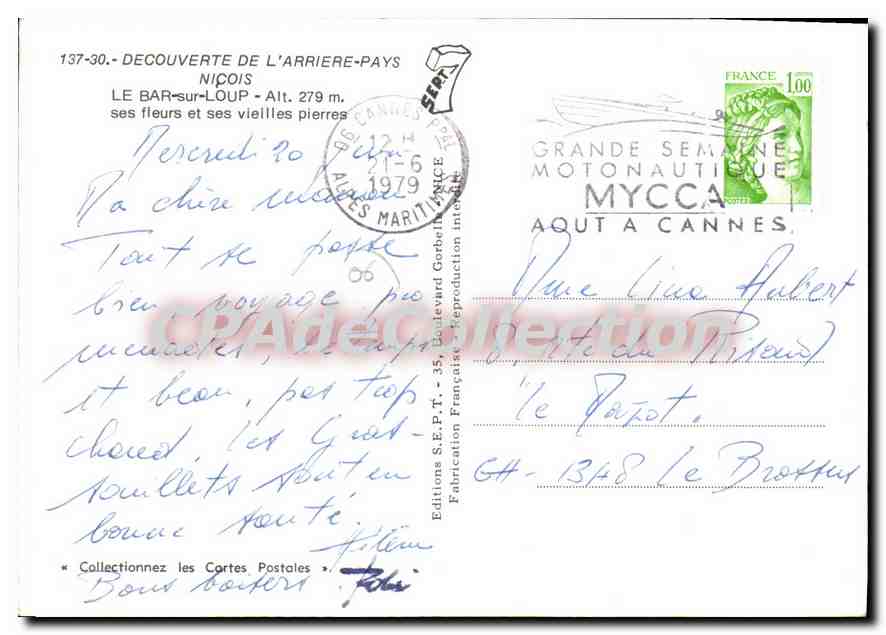 137-30.- DECOUVERTE DE L'ARRIERE-PAYS
NIÇOIS
LE BAR-sur-LOUP - Alt. 279 m.
ses fleurs et ses vieilles pierres
SEPT
7
06 CANNES PPAL
12 H
21-6
1979
ALPES MARITIMES
FRANCE
1,00
POSTES
GRANDE SEMAINE
MOTONAUTIQUE
MYCCA
AOUT A CANNES
Mercredi 20 Juin
Ma chère maman
Tout se passe
bien, voyage, pro
menades, le temps
est beau, pas trop
chaud, les Gras-
souillets sont en
bonne santé.
Hélène
« Collectionnez les Cartes Postales »
Bons baisers.
06
Editions S.E.P.T. - 35, Boulevard Gorbella - NICE
Fabrication Française - Reproduction interdite
Mme Lina Aubert
8, rte du
le Mazot.
CH - 1348 Le Brassus
CPAdeCollection